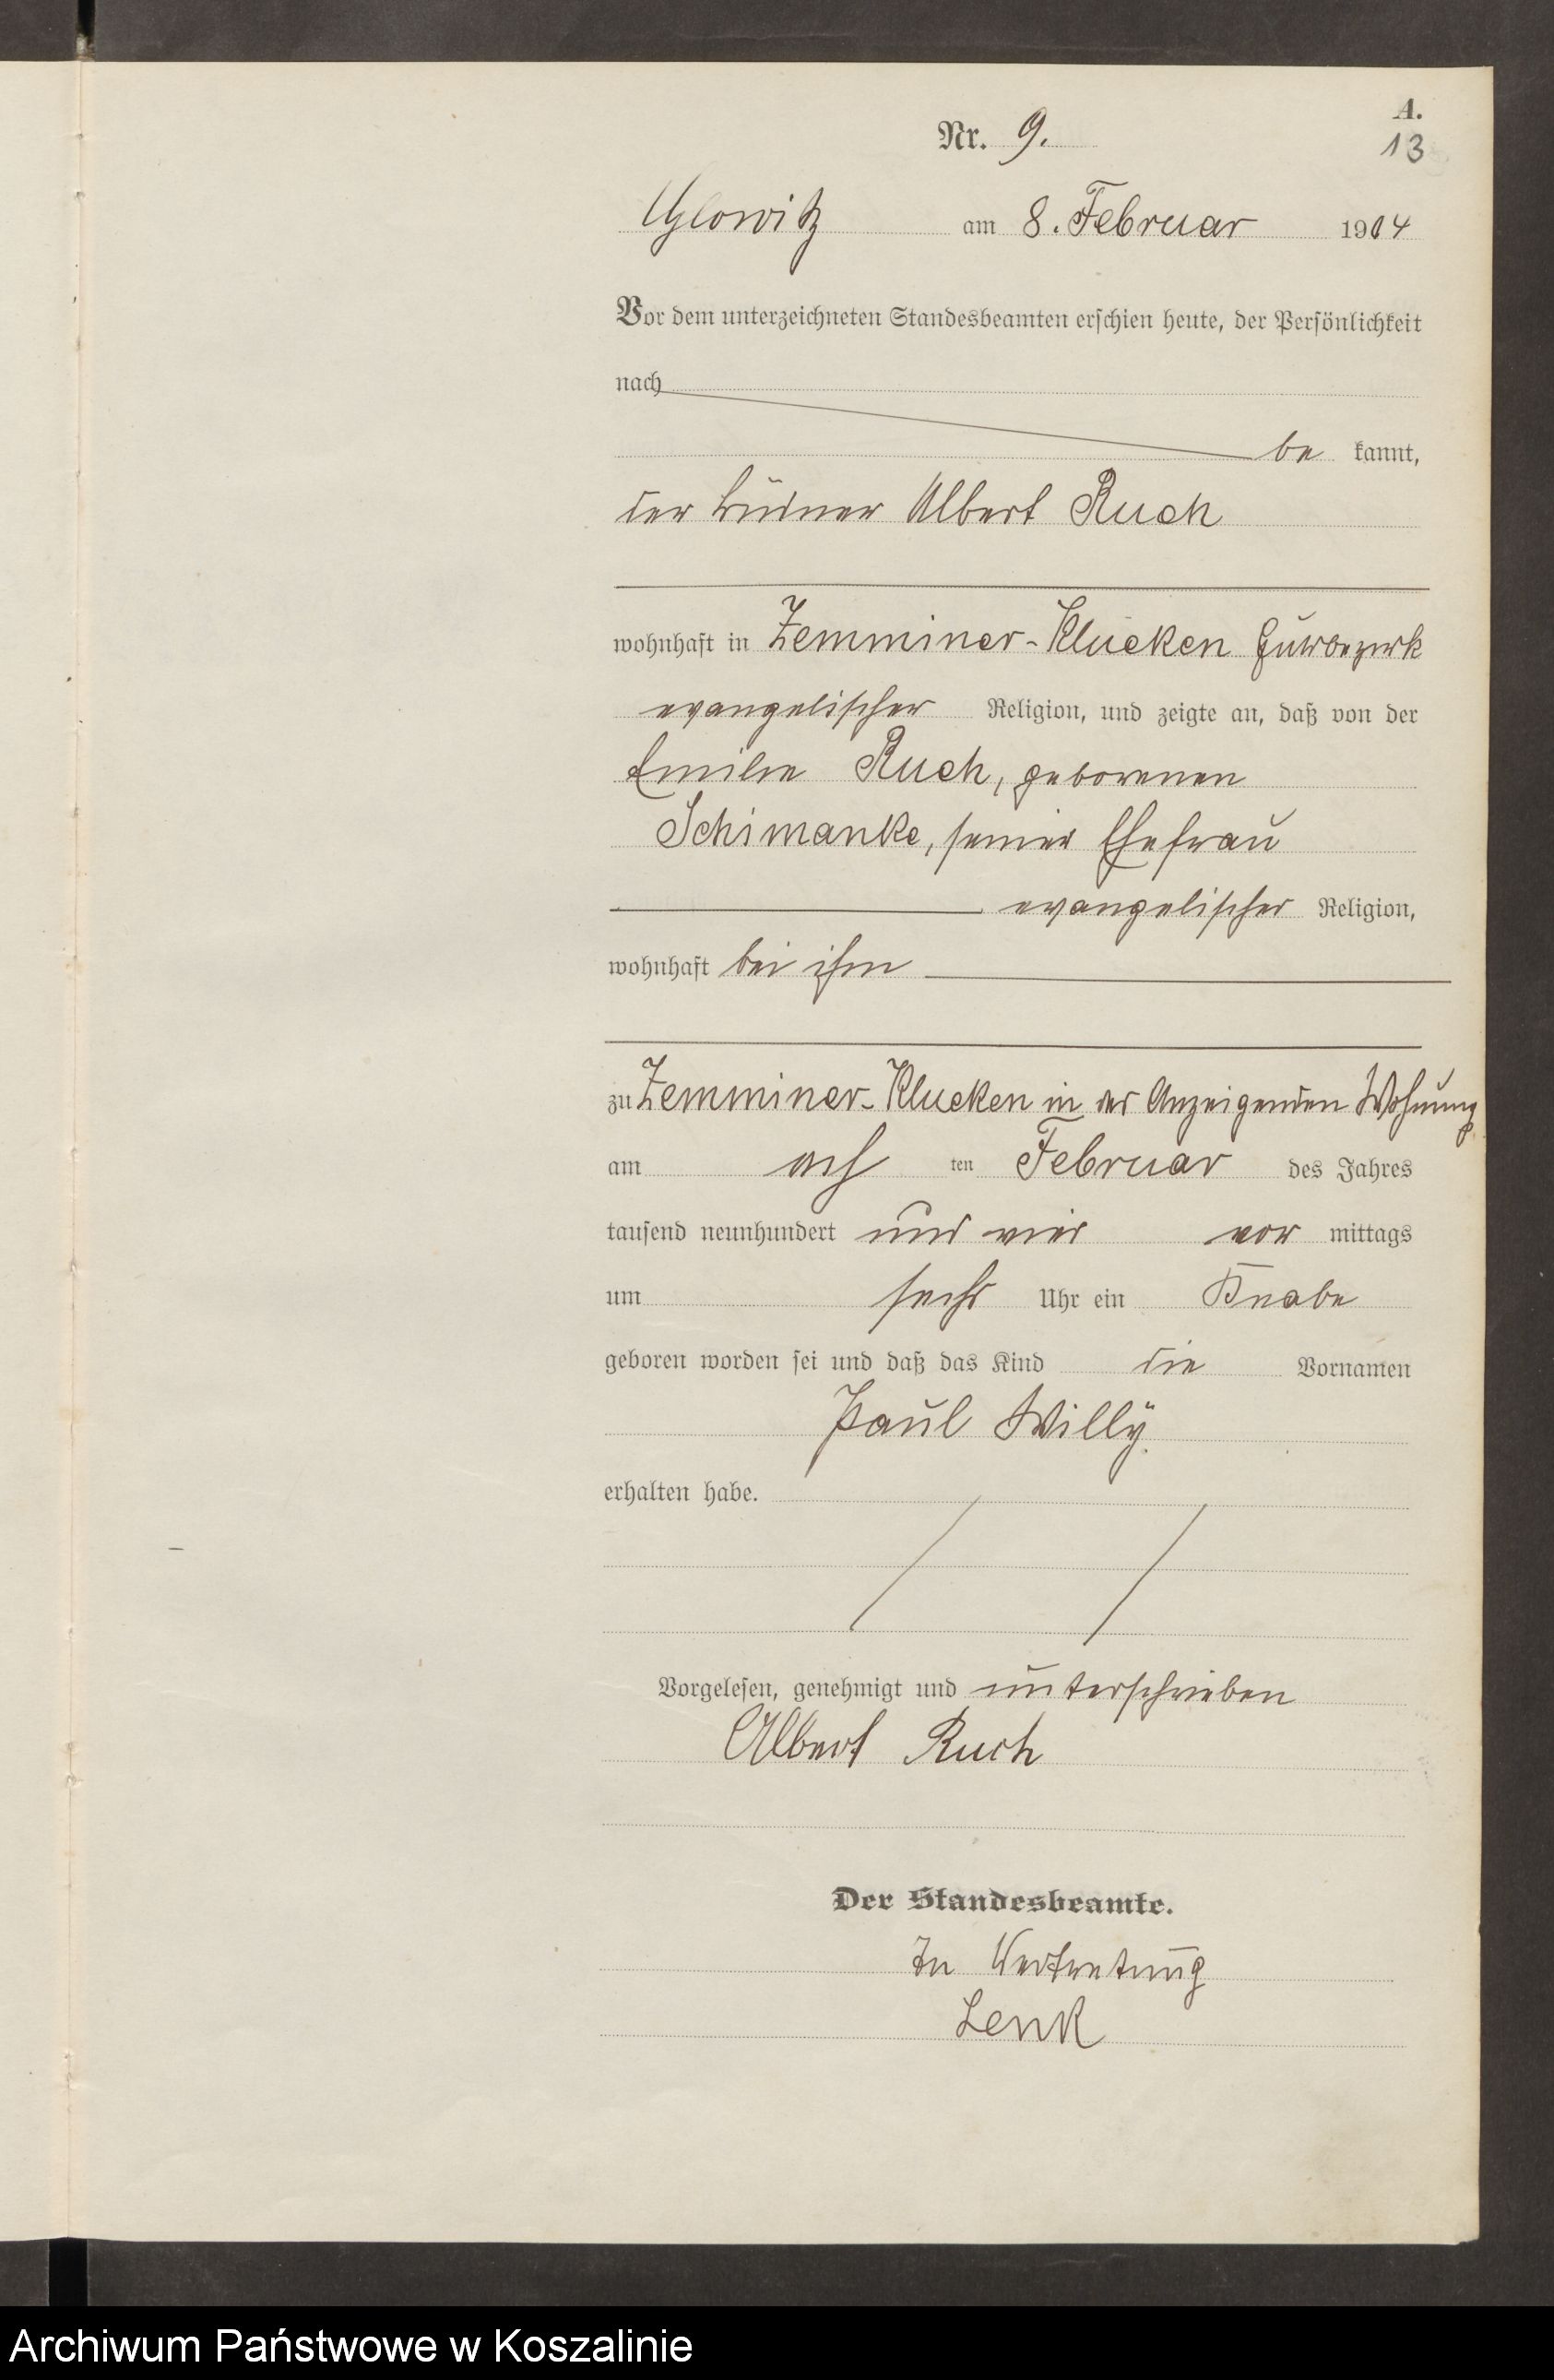 A.
Nr. 9.
13
Glowitz am 8. Februar 1904
Vor dem unterzeichneten Standesbeamten erschien heute, der Persönlichkeit
nach
be kannt,
der Büdner Albert Ruch
wohnhaft in Zemminer-Klucken Gutsbezirk
evangelischer Religion, und zeigte an, daß von der
Emilie Ruch, geborenen
Schimanke, seiner Ehefrau
evangelischer Religion,
wohnhaft bei ihm
zu Zemminer-Klucken in der Anzeigenden Wohnung
am ach ten Februar des Jahres
tausend neunhundert und vier vor mittags
um sechs Uhr ein Knabe
geboren worden sei und daß das Kind die Vornamen
Paul Willy
erhalten habe.
Vorgelesen, genehmigt und unterschrieben
Albert Ruch
Der Standesbeamte.
In Vertretung
Lenk
Archiwum Państwowe w Koszalinie